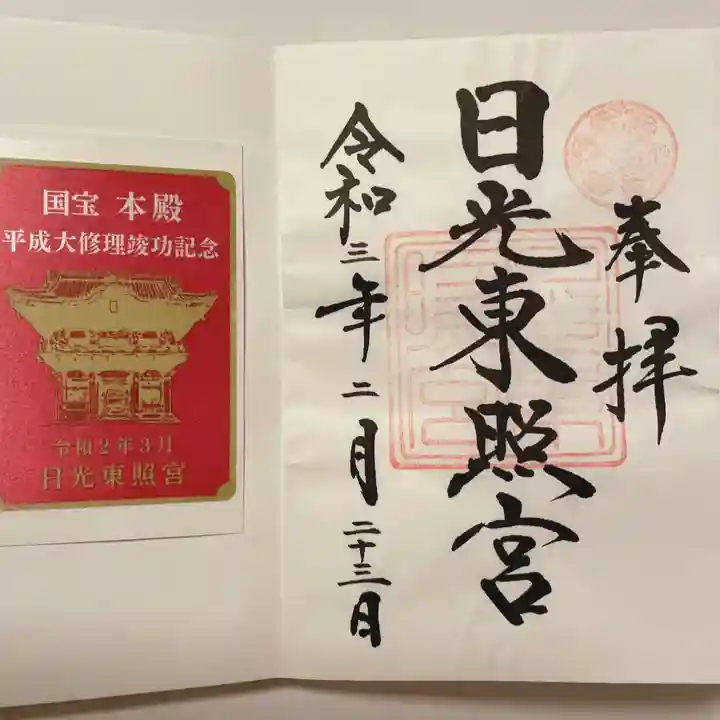 奉拝
日光東照宮
令和三年二月二十三日
国宝 本殿
平成大修理竣功記念
令和2年3月
日光東照宮